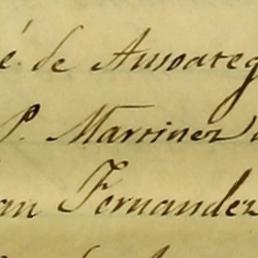 é. de Ansoateg
P. Martinez
an Fernandez